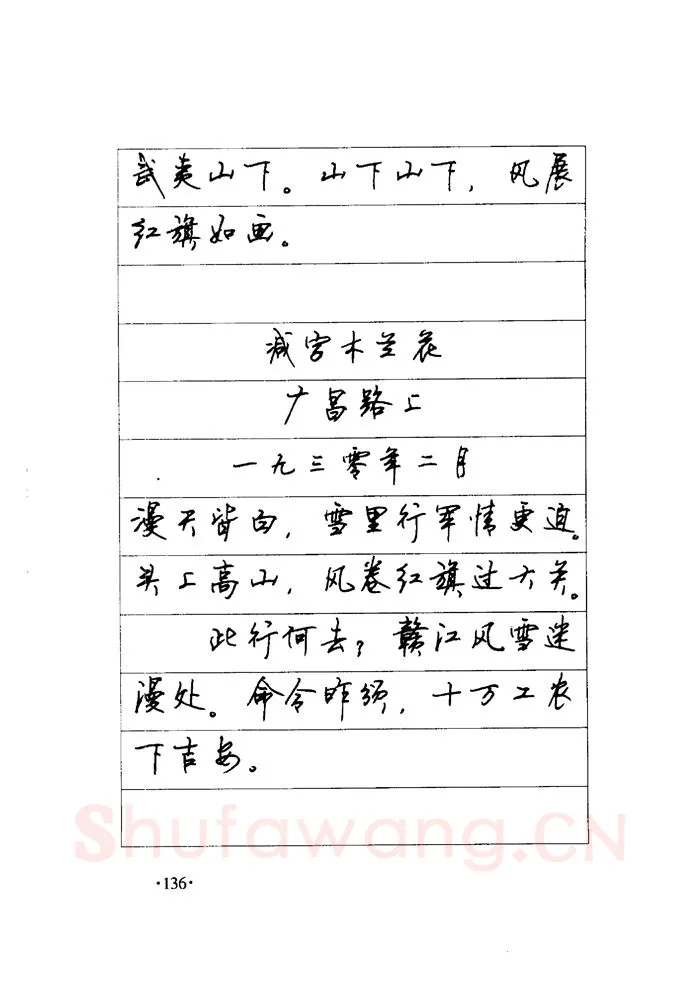 武夷山下。山下山下，风展
红旗如画。
减字木兰花
广昌路上
一九三零年二月
漫天皆白，雪里行军情更迫。
头上高山，风卷红旗过大关。
此行何去？赣江风雪迷
漫处。命令昨颁，十万工农
下吉安。
Shufawang.CN
·136·